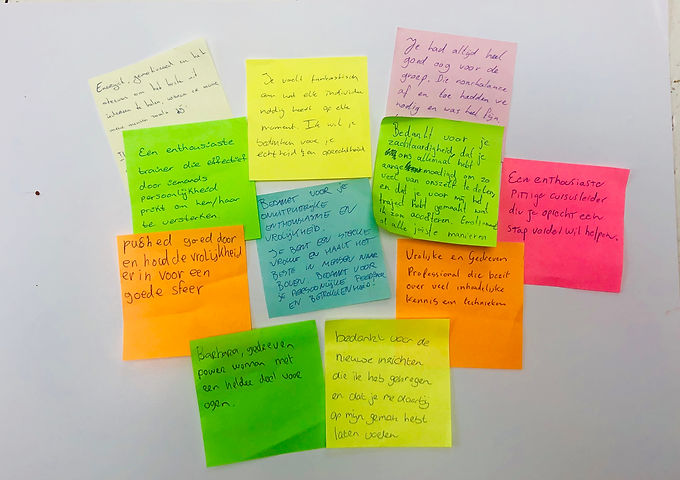 Energiek, gemotiveerd en het
uiterste om het beste uit
iedereen te halen, waren er maar
meer mensen zoals jij.
Je voelt fantastisch
aan wat elk individu
nodig heeft op elk
moment. Ik wil je
bedanken voor je
echtheid en oprechtheid
Je had altijd heel
goed oog voor de
groep. Die nonchalance
af en toe hadden we
nodig en was heel fijn.
Een enthousiaste
trainer die effectief
door iemands
persoonlijkheid
prikt om hem/haar
te versterken.
Bedankt voor je
zachtaardigheid, dat je
ons allemaal hebt
aangemoedigd om zo
veel van onszelf te delen
en dat je voor mij het
traject hebt gemaakt wat
ik zou accolleren. Emotioneel
op alle juiste manieren
Een enthousiaste
Pittige cursusleider
die je oprecht een
stap verder wil helpen.
BEDANKT VOOR JE
ONUITPUTTELIJKE
ENTHOUSIASME EN
VROLIJKHEID.
JE BENT EEN STERKE
VROUW EN HAALT HET
BESTE IN MENSEN NAAR
BOVEN BEDANKT VOOR
JE PERSOONLIJKE FEEDBACK
EN BETROKKENHEID!
pushed goed door
en houd de vrolijkheid
er in voor een
goede sfeer
Vrolijke en Gedreven
Professional die bezit
over veel inhoudelijke
kennis en technieken
Barbara, gedreven
power woman met
een helder doel voor
ogen.
bedankt voor de
nieuwe inzichten
die ik heb gekregen
en dat je me daarbij
op mijn gemak hebt
laten voelen